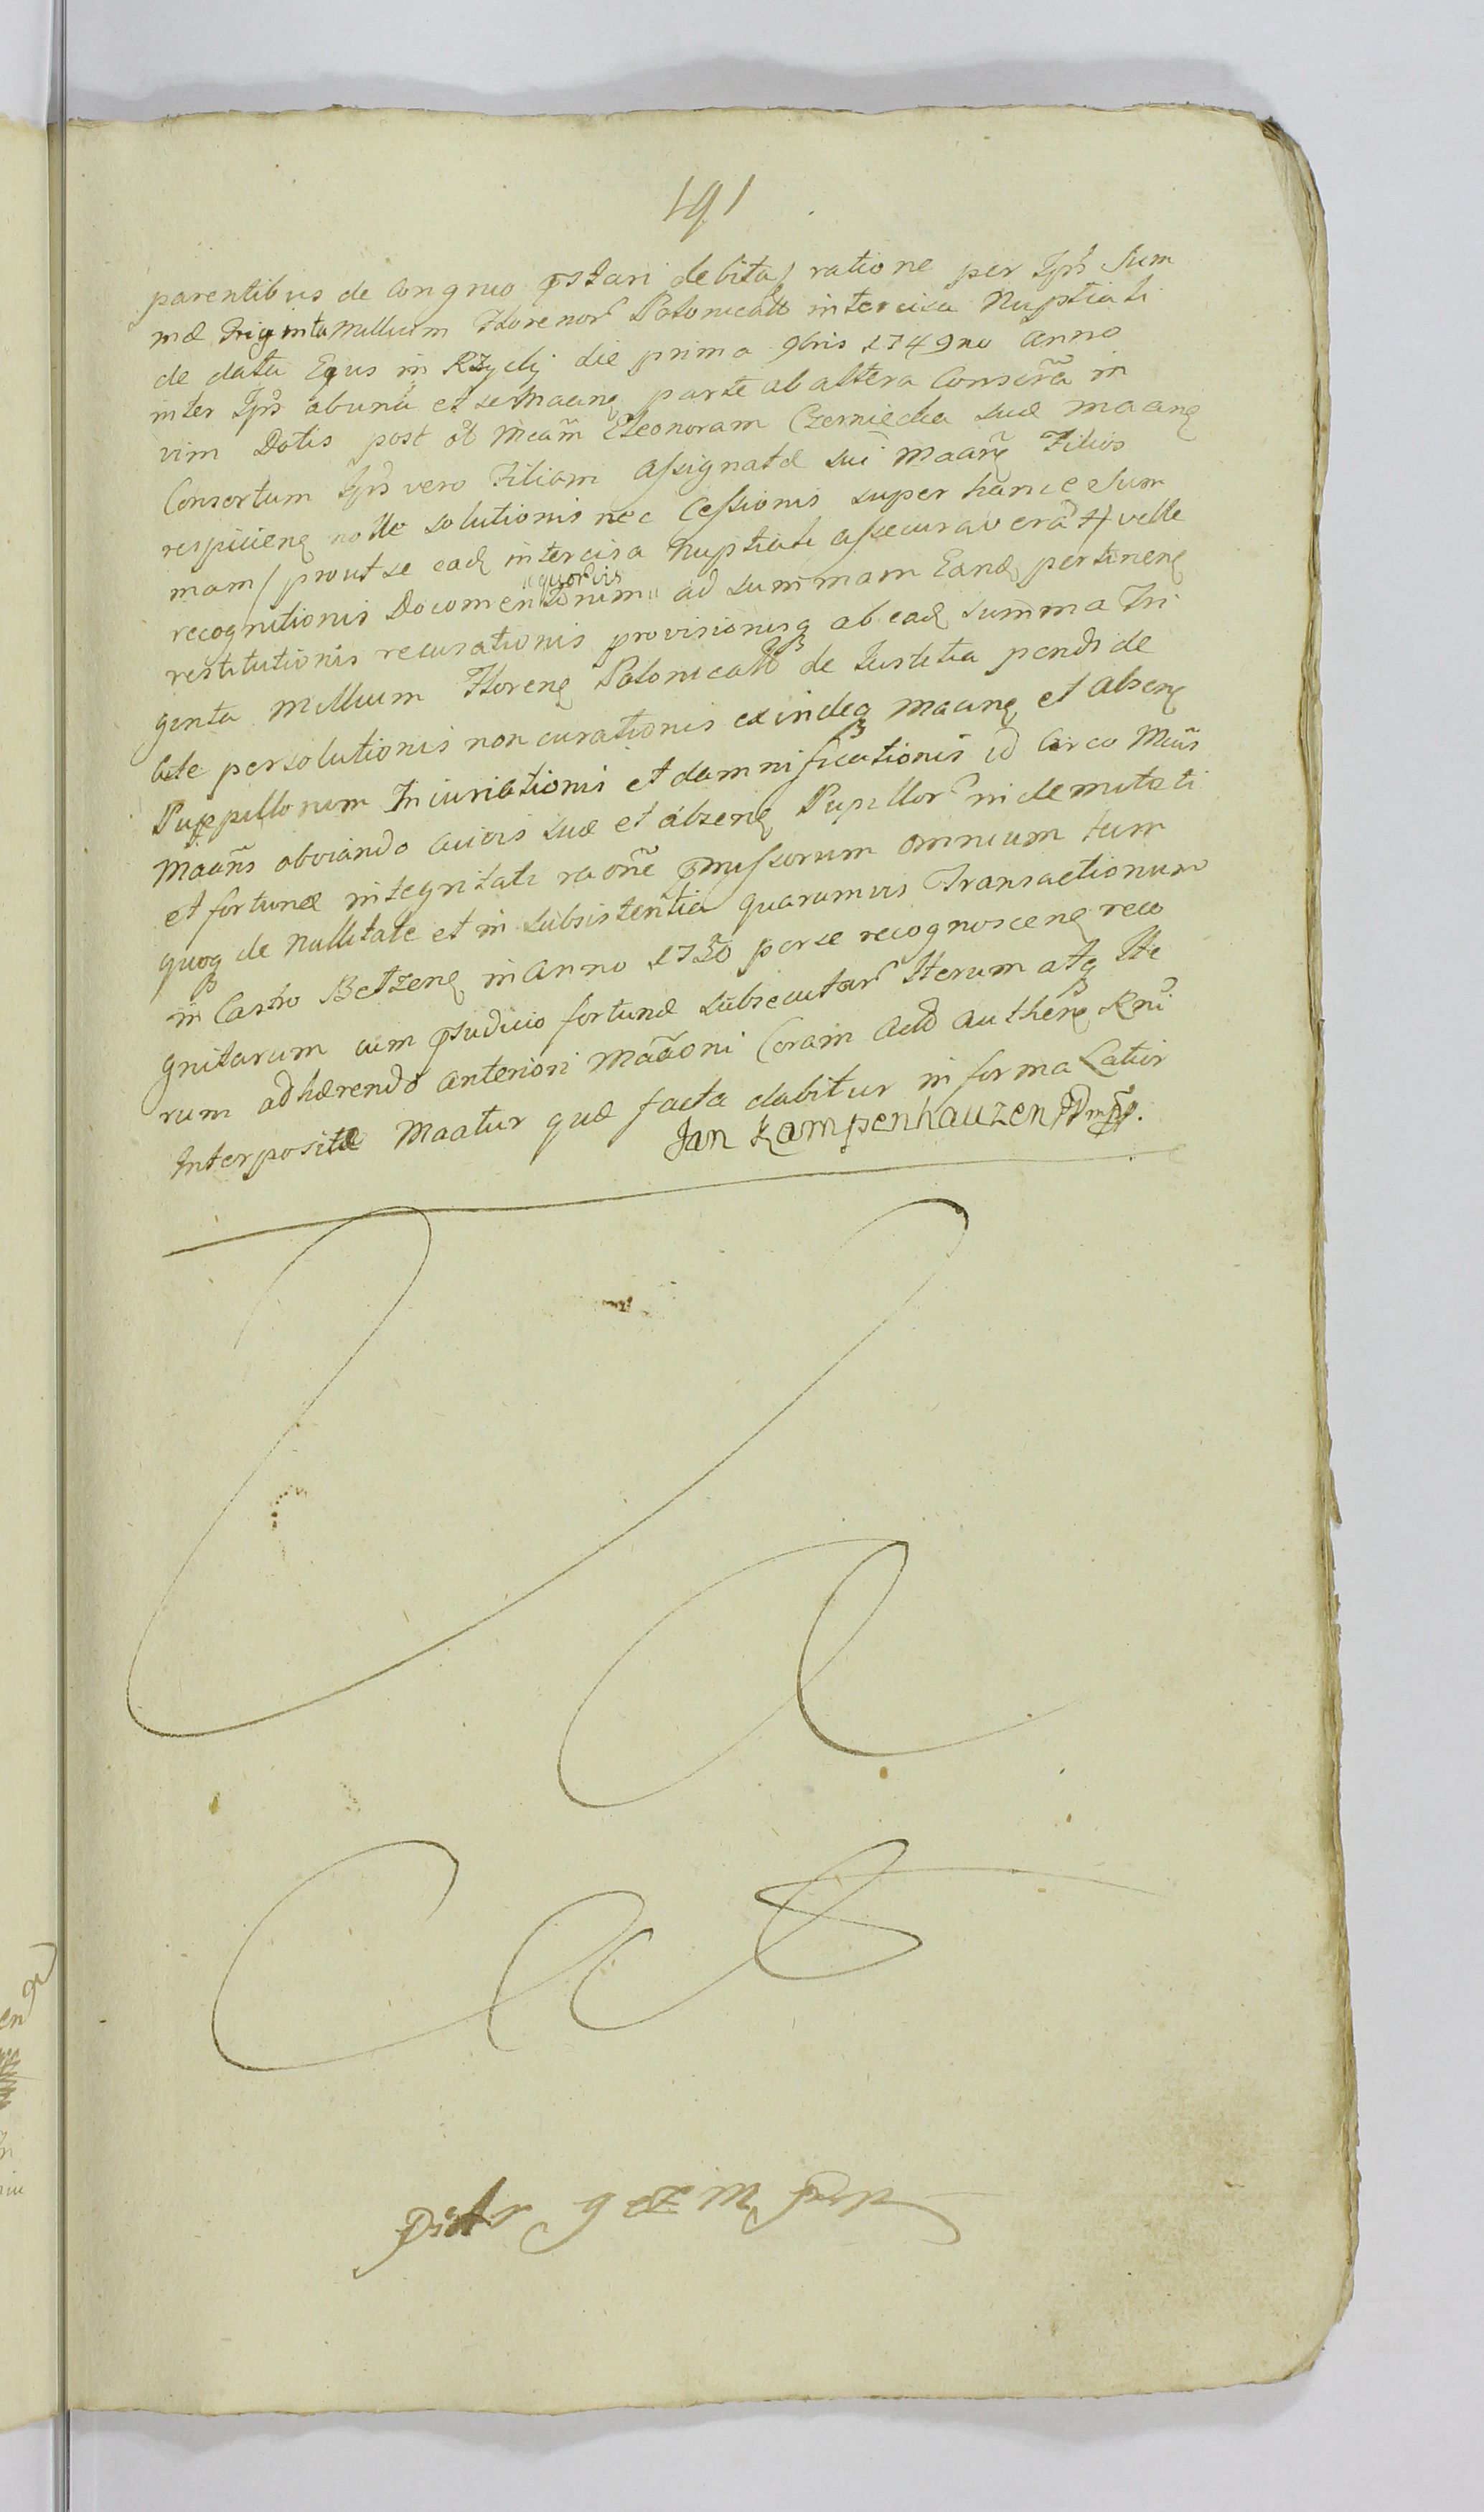 191
parentibus de congruo p̃stari debita) ratione per Ipś Sum
mæ Triginta Millium Florenor Polonicalῖ intercisa Nuptiali
de data Eius in Rzyclj die prima 9bris 1749no anno
inter Ipś ab una et se Maanę parte ab altera Conscr̃a in
vim Dotis post ol Mcam̃ Eleonoram Czerniecka suæ maanę
Consortum Ipś vero Filiam assignatæ sui Maanę Filios
respicienę nolle solutionis nec Cessionis super hance sum
mam / prout se eadę intercisa Nuptiali assecuraverat /velle
recognitionis Documentorum ad summam Eandę pertinenę
"quorvis"
restitutionis recusationis provisionisqȝ ab eadę summa Tri
ginta Millium Florenę Polonicalῖ de Iustitia pendi de
bite persolutionis non curationis exindeqȝ Maanę et absenę
Puppillorum Iniuriationis et damnificationis id circo Mcus̃
Maans̃ obviando suæ et absenę Pupillor indemnitati
et fortunæ integritati raoñe p̃missorum omnium tum
quoqȝ de Nullitate et in subsistentia quarumvis Transactionum
in Castro Betzenę in anno 1750 per se recognoscenę reco
gnitarum cum p̃iudicio fortunæ subsecutar Iterum atqȝ Ite
rum adhærendo anteriori Maãoni Coram Actῖ Authenę Rni
Interpositæ Maatur quæ facta dabitur in forma Latior
Jan Kampenhauzen